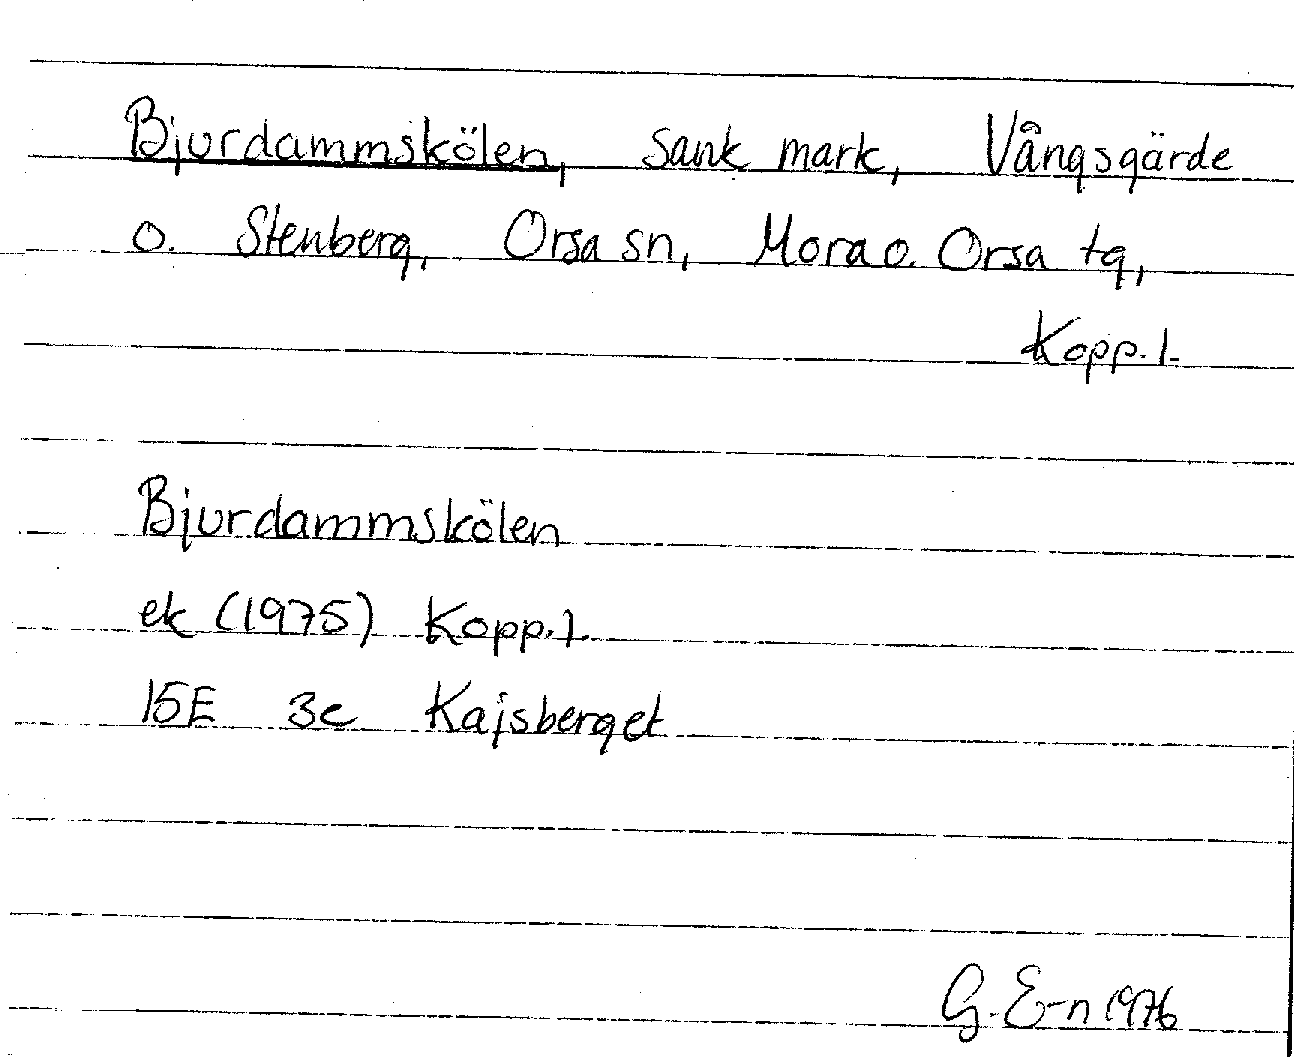 Bjurdammskölen, sank mark, Vångsgärde
o. Stenberg, Orsa sn, Mora o. Orsa tg,
Kopp. l.
Bjurdammskölen
ek (1975) Kopp. l.
15E 3c Kajsberget
G. E-n 1976